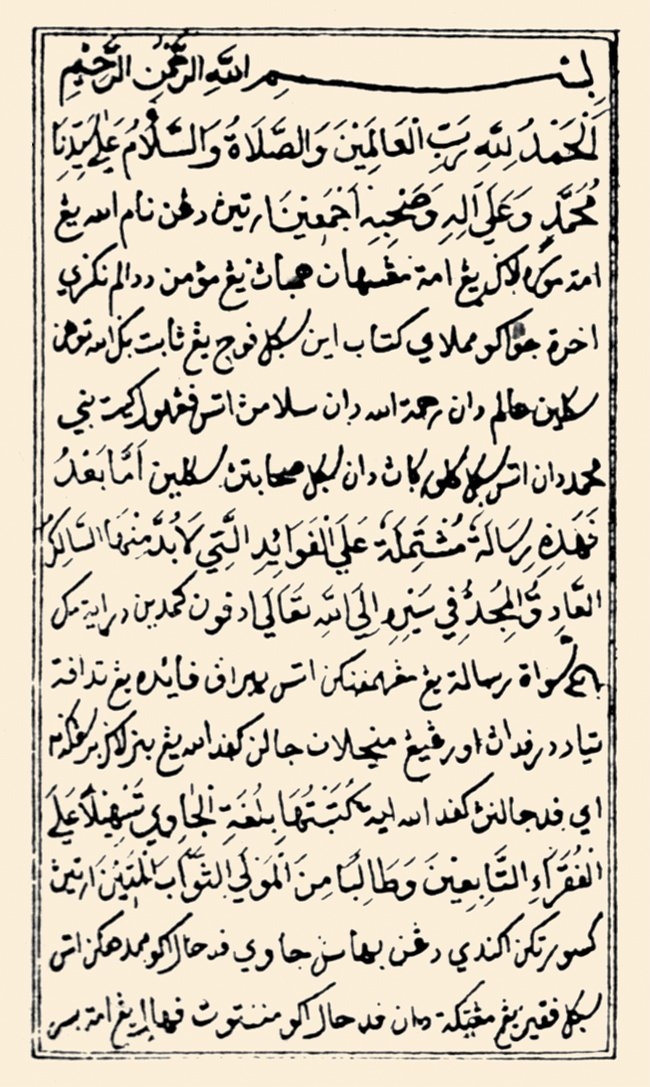 بِسْمِ اللهِ الرَّحْمٰنِ الرَّحِيْمِ
اَلْحَمْدُ لِلّٰهِ رَبِّ الْعَالَمِيْنَ وَالصَّلَاةُ وَالسَّلَامُ عَلَى سَيِّدِنَا
مُحَمَّدٍ وَعَلَى اَلِهِ وَصَحْبِهِ اَجْمَعِيْنَ ارتيڽ دڠن نام الله يڠ
امة موره لاݢ يڠ امة مڠسهان همباڽ يڠ مؤمن ددالم نكري
اخرة جوا اكو مملاءي كتاب اين سكل فوج يڠ ثابت بݢ الله توهن
سكلين عالم دان رحمة الله دان سلامڽ اتس ڤڠهولو كيت نبي
محمد دان اتس سكل كلورݢاڽ دان سكل صحابتڽ سكلين اَمَّا بَعْدُ
فَهَذِهِ رِسَالَةٌ مُشْتَمِلَةٌ عَلَى الْفَوَائِدِ الَّتِي لَابُدَّ مِنْهَا السَّالِكُ
الصَّادِقُ الْمُجِدُّ فِي سَيْرِهِ اِلَى اللهِ تَعَالَى ادفون كمدين دراية مك
سواة رسالة يڠ مڠهمفنكن اتس ببراف فائده يڠ تدافة
تياد درفداڽ اورڠ يڠ منجالن جالن كفد الله يڠ بنر لاݢ
اي فد جالنڽ كفد الله ايت كَتَبْتُهَا بِلُغَةِ الْجَاوِي تَسْهِيْلًا عَلَى
الْفُقَرَاءِ التَّابِعِيْنَ وَطَالِبًا مِنَ الْمَوْلَى الثَّوَابَ الْمَتِيْنَ ارتيڽ
كسورتكن اكندي دڠن بهاس جاوي فد حال اكو ممدهكن اتس
سكل فقير يڠ مڠيكة دان فد حال اكو مننتوت فهلا يڠ امة بسر